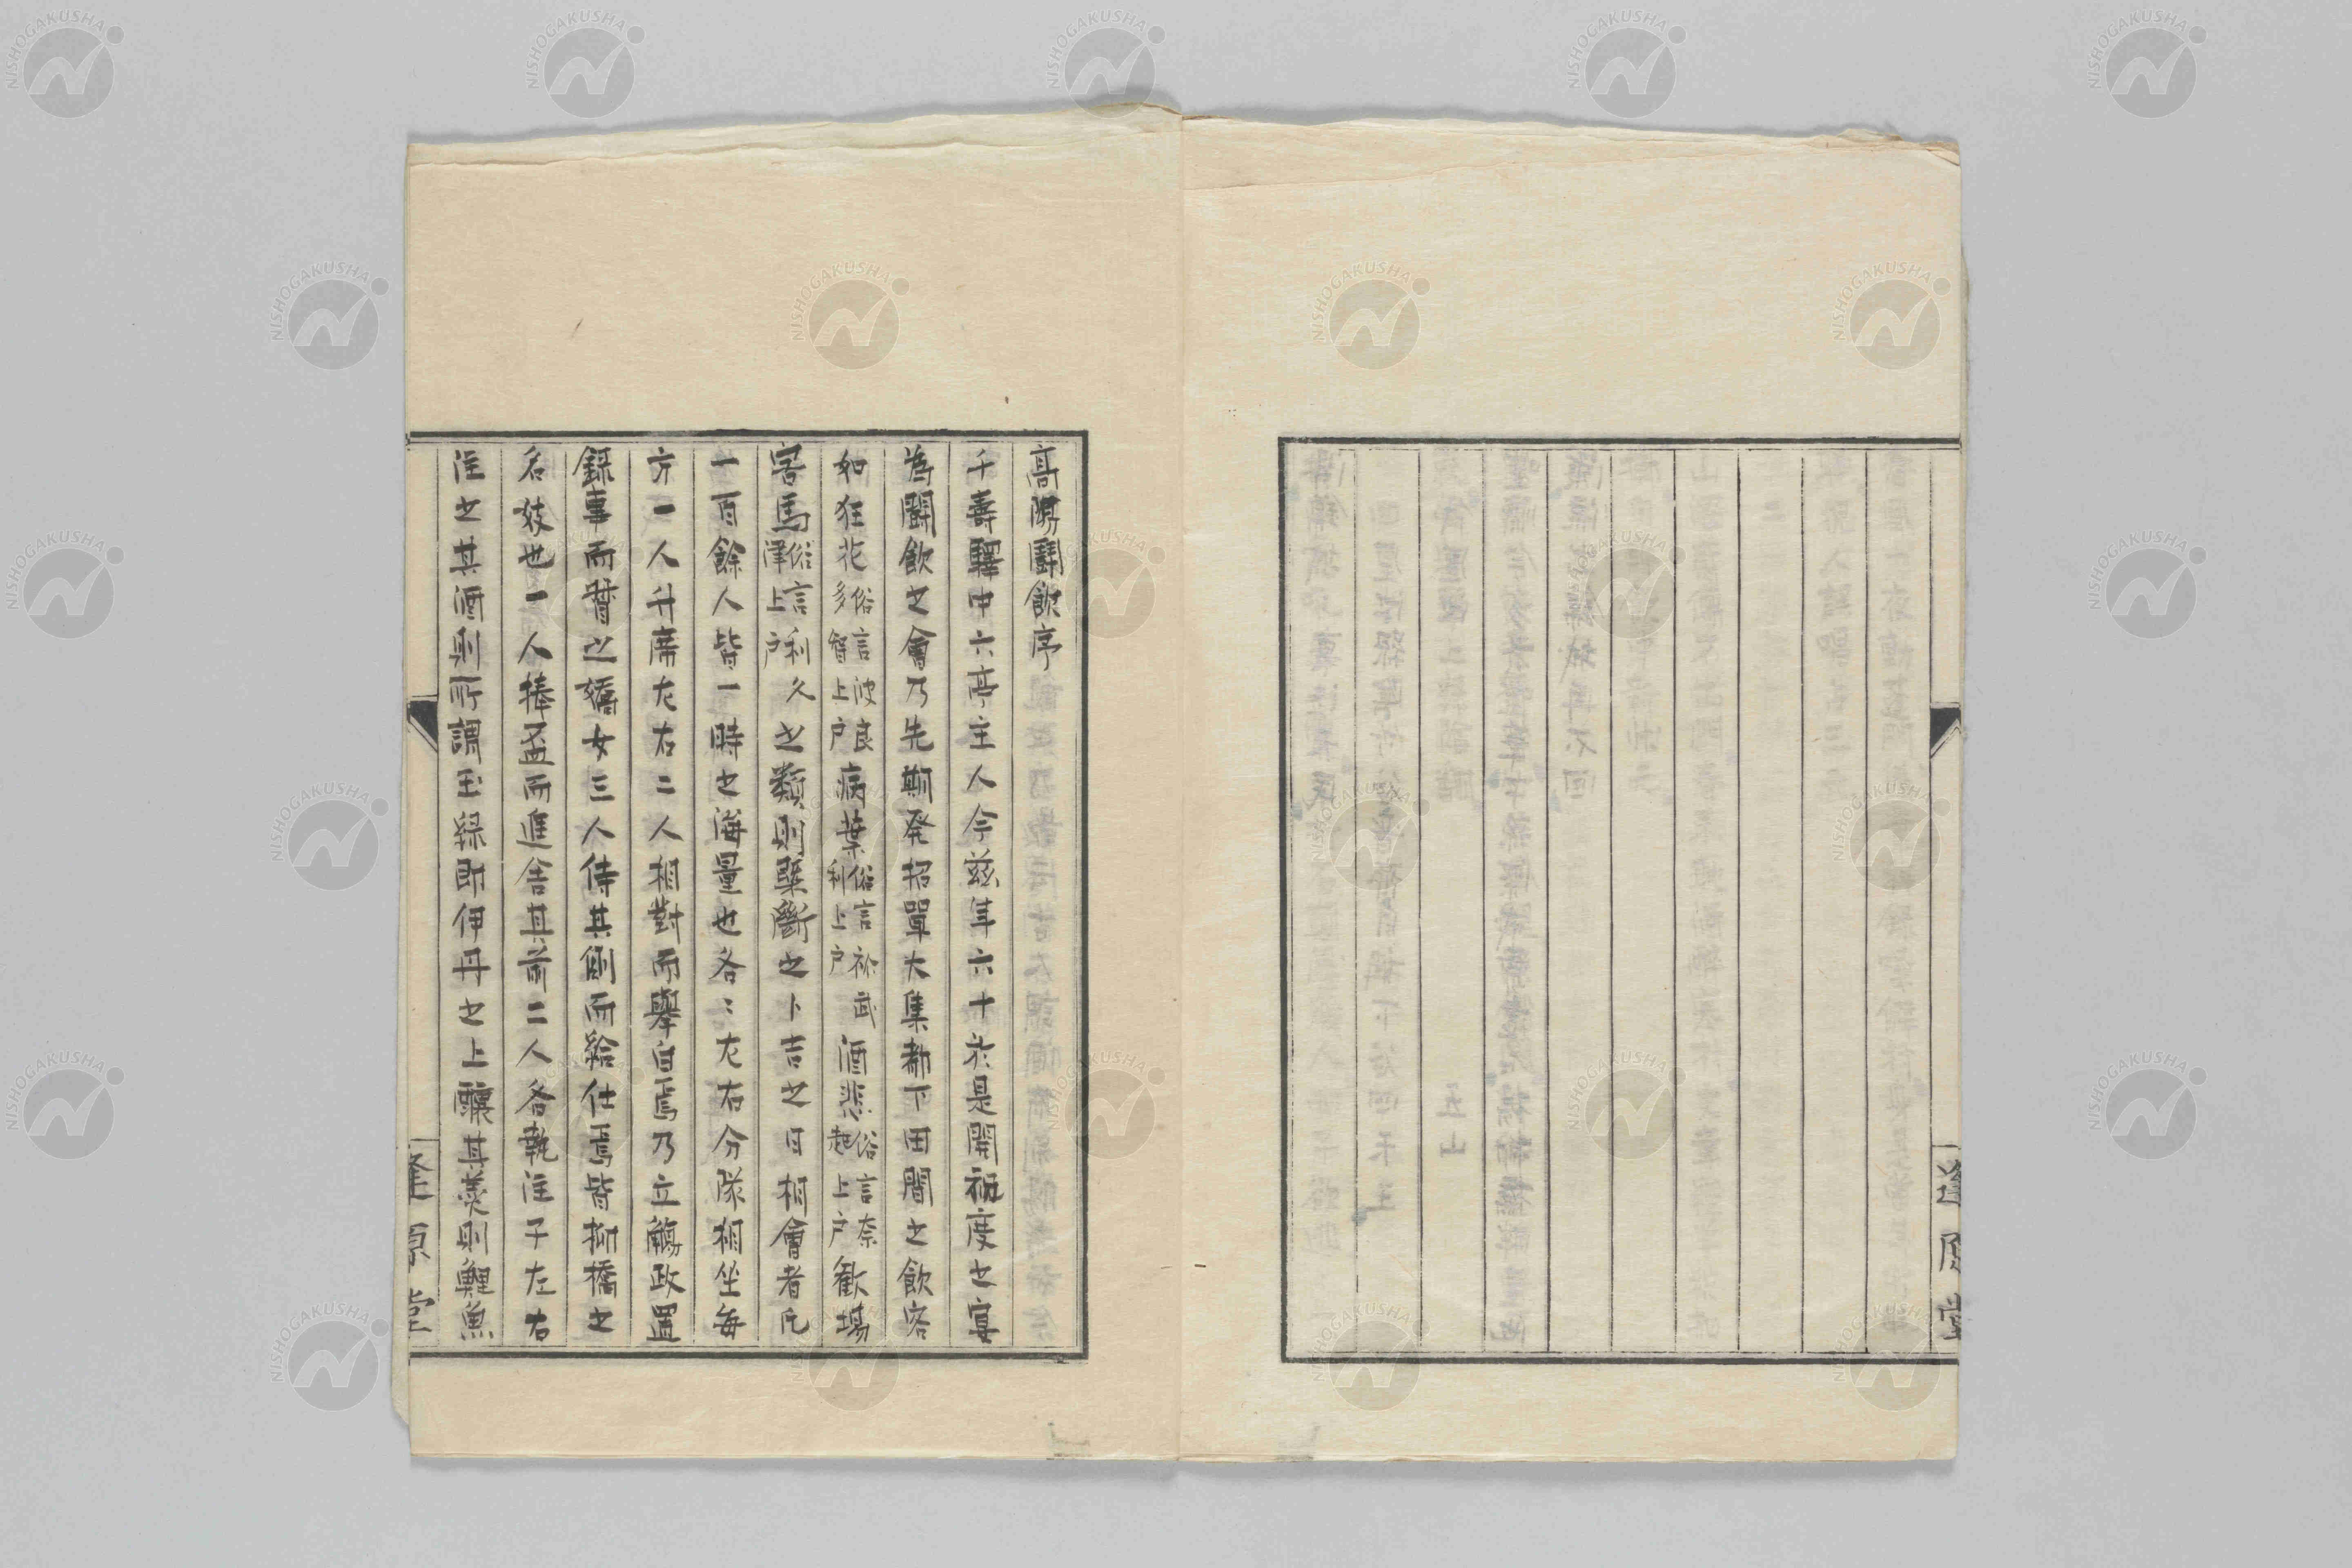 高陽闘飲序
千壽驛中六亭主人今茲年六十於是開初度之宴
為闘飲之會乃先期発招單大集都下田間之飲客
如狂花俗言波良多智上戸病葉俗言祢武利上戸酒悲俗言奈起上戸歓場
害馬俗言利久津上戸之類則槩斷之卜吉之日相會者凡
一百餘人皆一時之海量也各〻左右分隊相坐每
方一人升席左右二人相對而擧白焉乃立觴政置
録事而督之嬌女三人侍其側而給仕焉皆柳橋之
名妓也一人捧盃而進舎其前二人各執注子左右
注之其酒則所謂玉緑即伊丹之上釀其羮則鯉魚
逢原堂
逢原堂
NISHOGAKUSHA